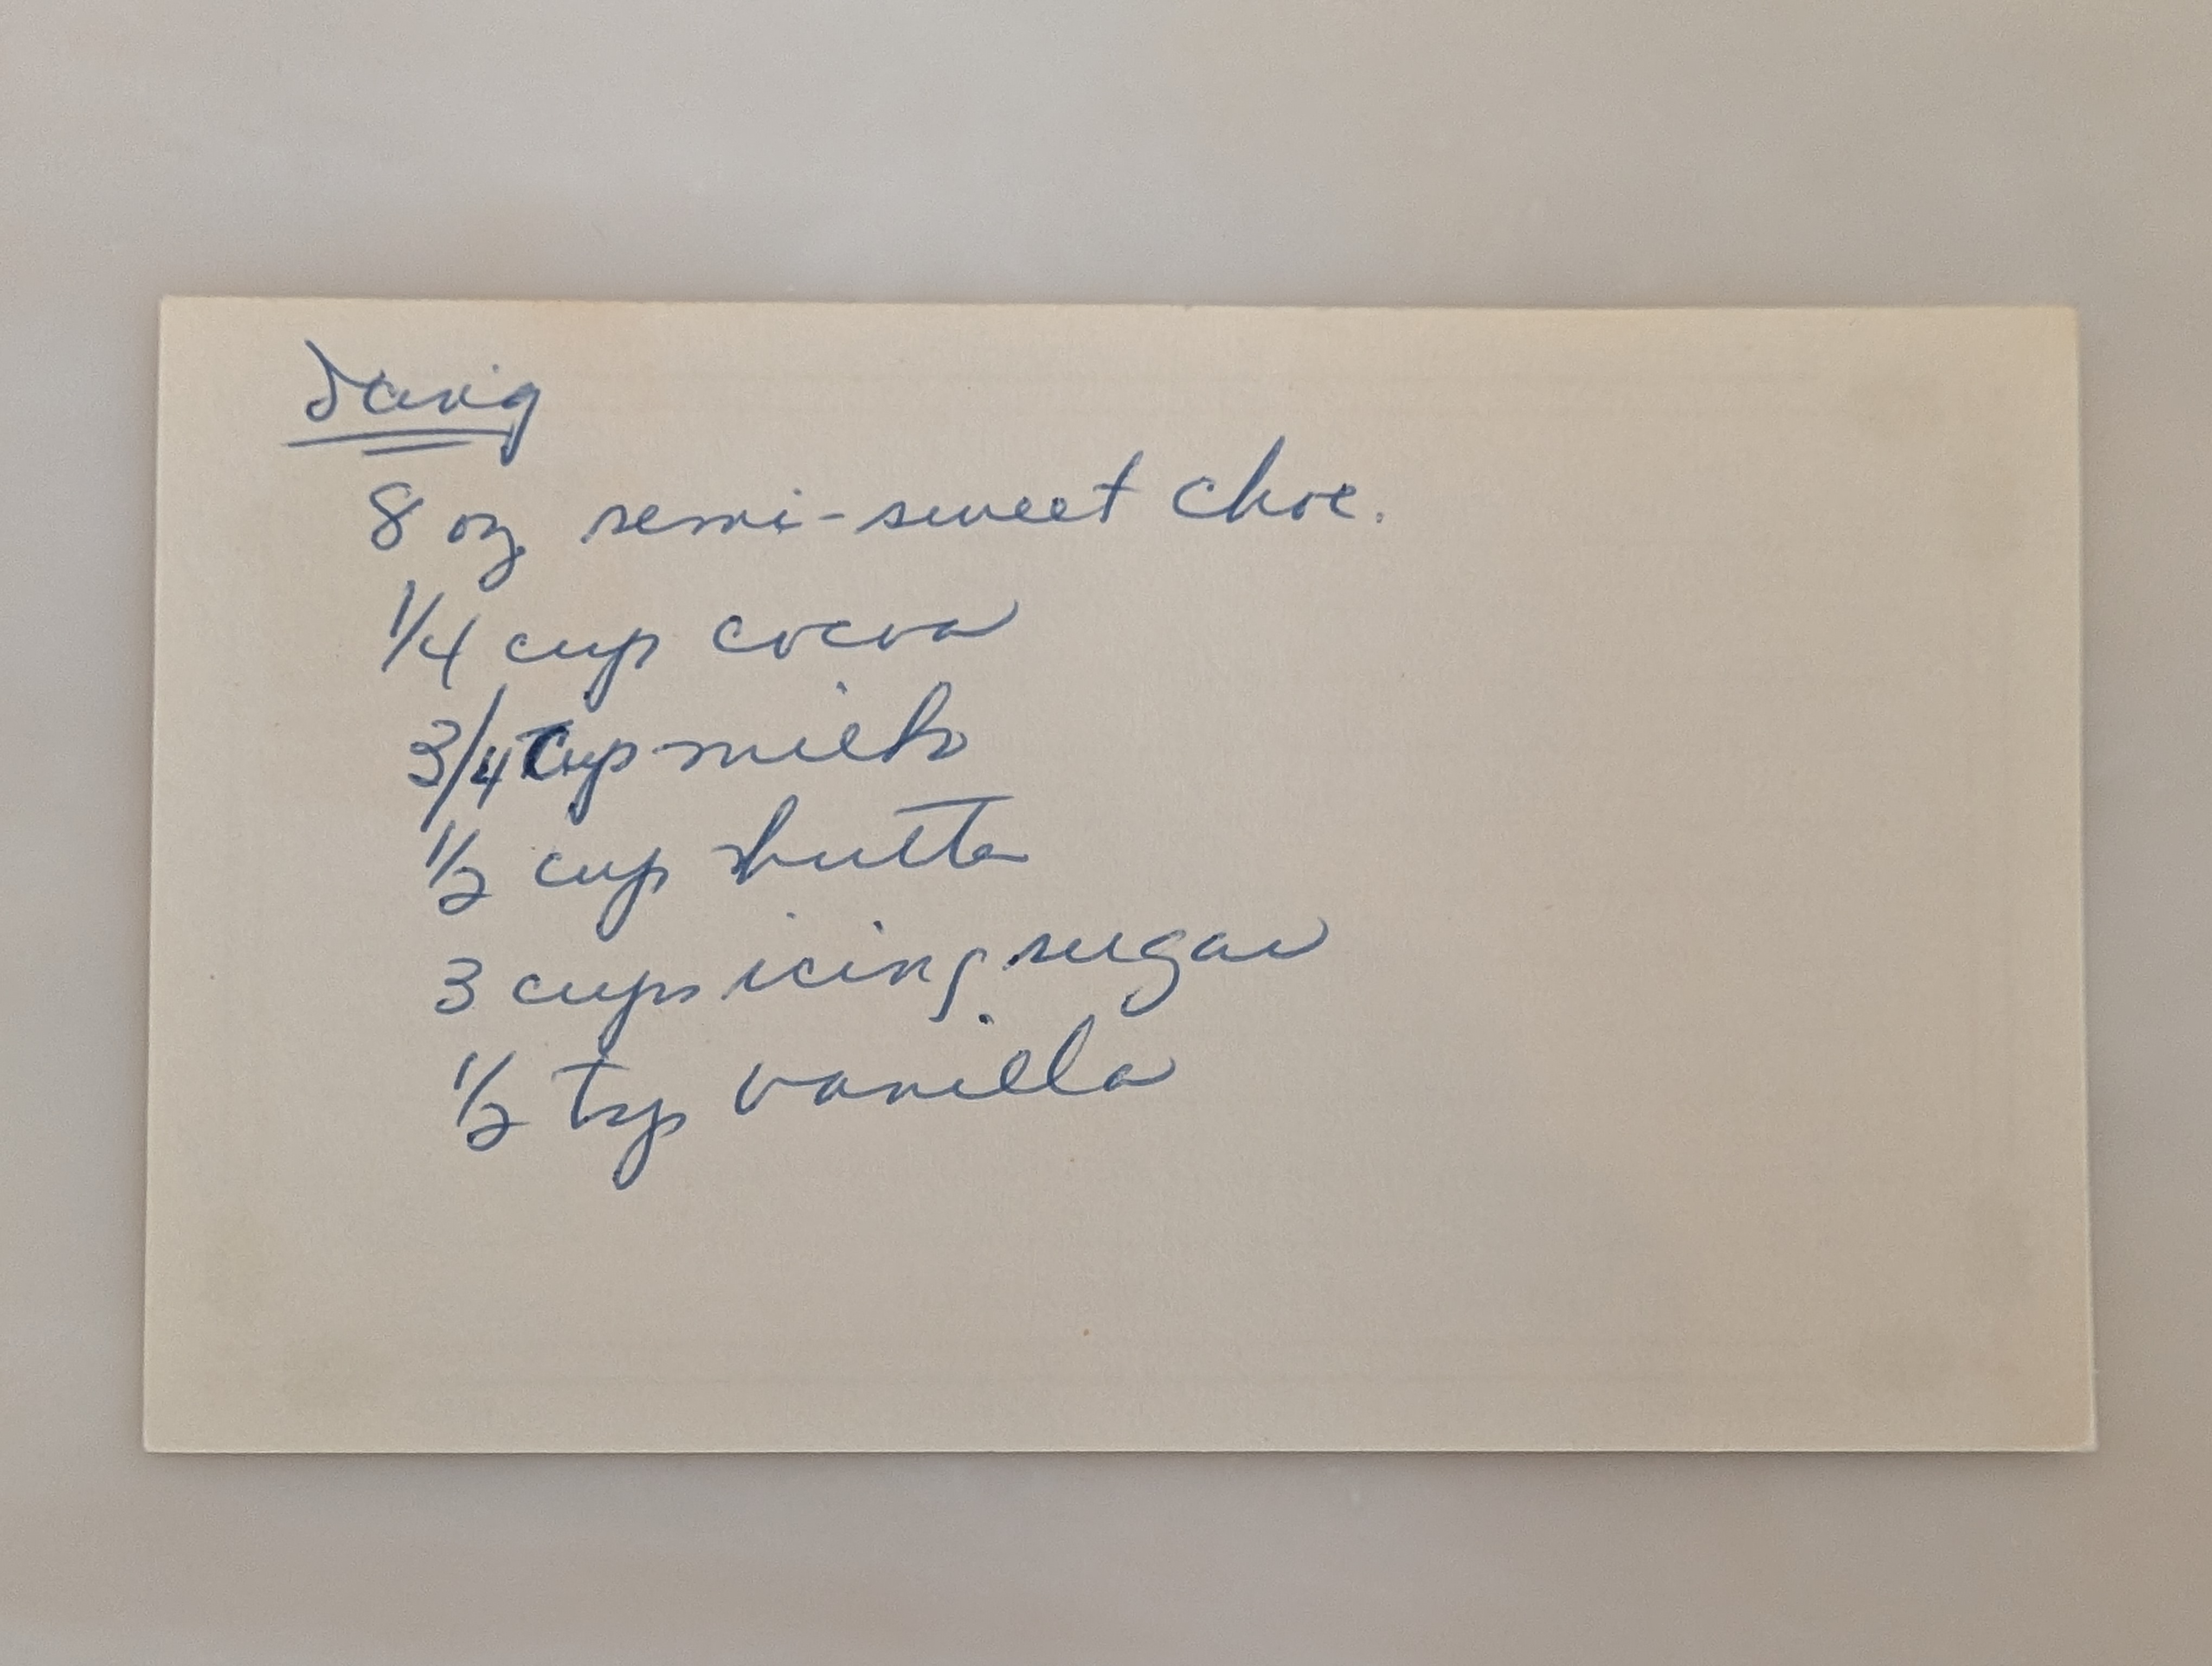 Icing
8 oz semi-sweet choc.
1/4 cup cocoa
3/4 cup milk
1/2 cup butter
3 cups icing sugar
1/2 tsp vanilla